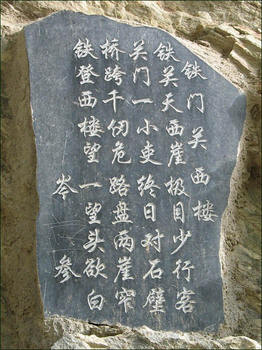 铁门关西楼
铁关天西崖极目少行客
关门一小吏终日对石壁
桥跨千仞危路盘两崖窄
铁登西楼望一望头欲白
岑参